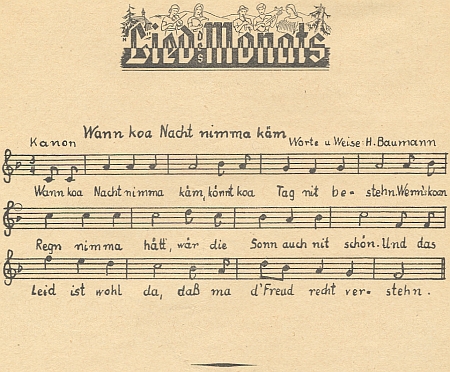 Lied des Monats
Wann koa Nacht nimma käm
Kanon
Worte u Weise: H. Baumann
Wann koa Nacht nimma käm, könnt koa Tag nit be-stehn. Wenn's koan
Regn nimma hätt, wär die Sonn auch nit schön. Und das
Leid ist wohl da, daß ma d'Freud recht ver-stehn.